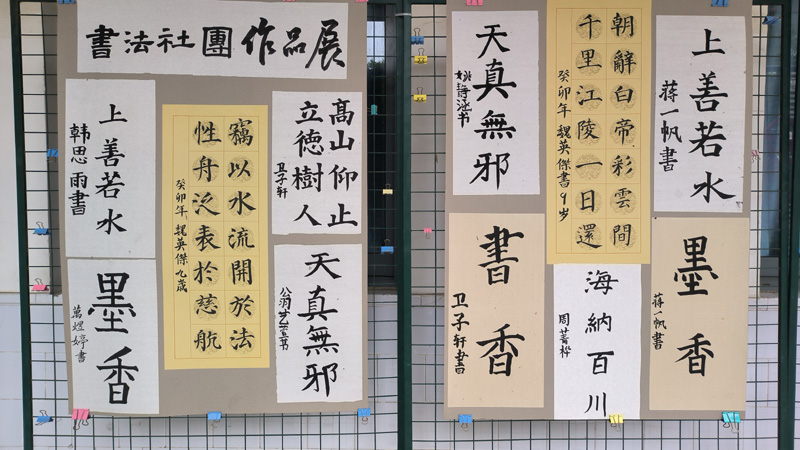 書法社團作品展
上善若水
韩思雨書
墨香
萬煜婷書
竊以水流開於法
性舟泛表於慈航
癸卯年 魏英傑九歲
高山仰止
立德樹人
卫子轩
天真無邪
天真無邪
朝辭白帝彩雲間
千里江陵一日還
癸卯年 魏英傑書9岁
上善若水
蒋一帆書
書香
卫子轩書
海納百川
周菁桦
墨香
蒋一帆書